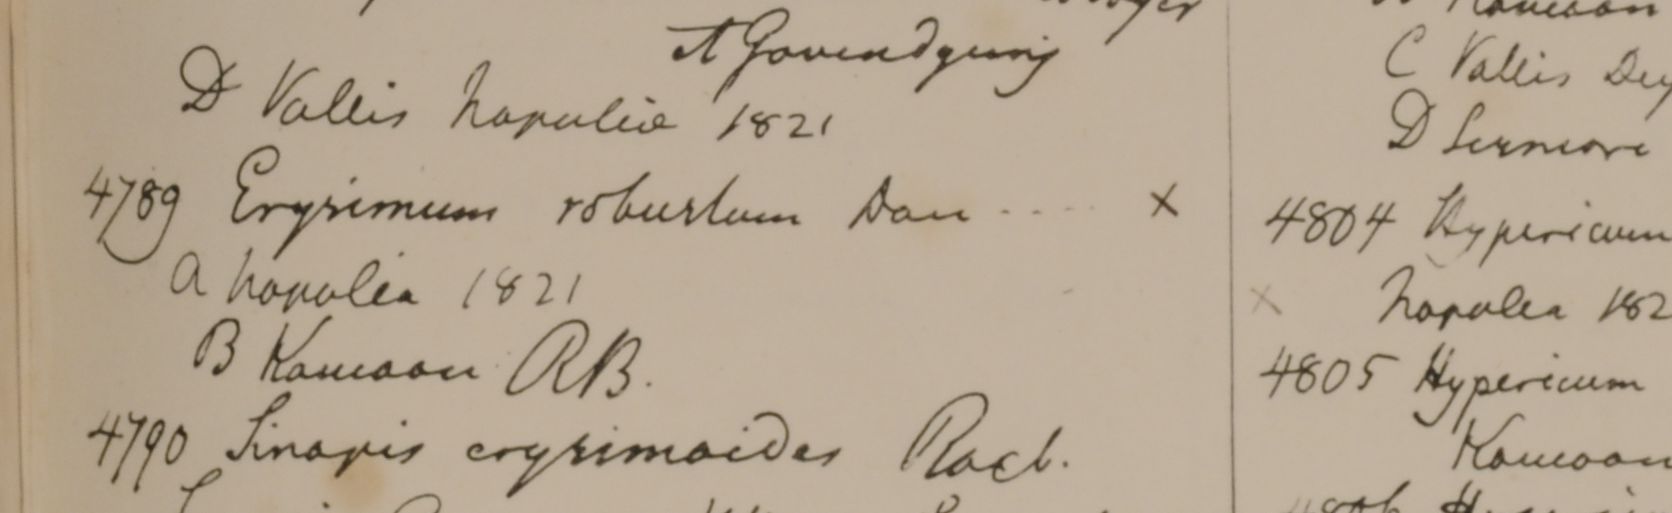 A Govendgung
D Vallis Napulia 1821
4789 Erysimum robustum Don ..... x
a Napulia 1821
B Kamaon RB.
4790 Sinapis erysimoides Roxb.
C Vallis
D Sirmore
4804 Hypericum
x Napalea 182
4805 Hypericum
Kamaon